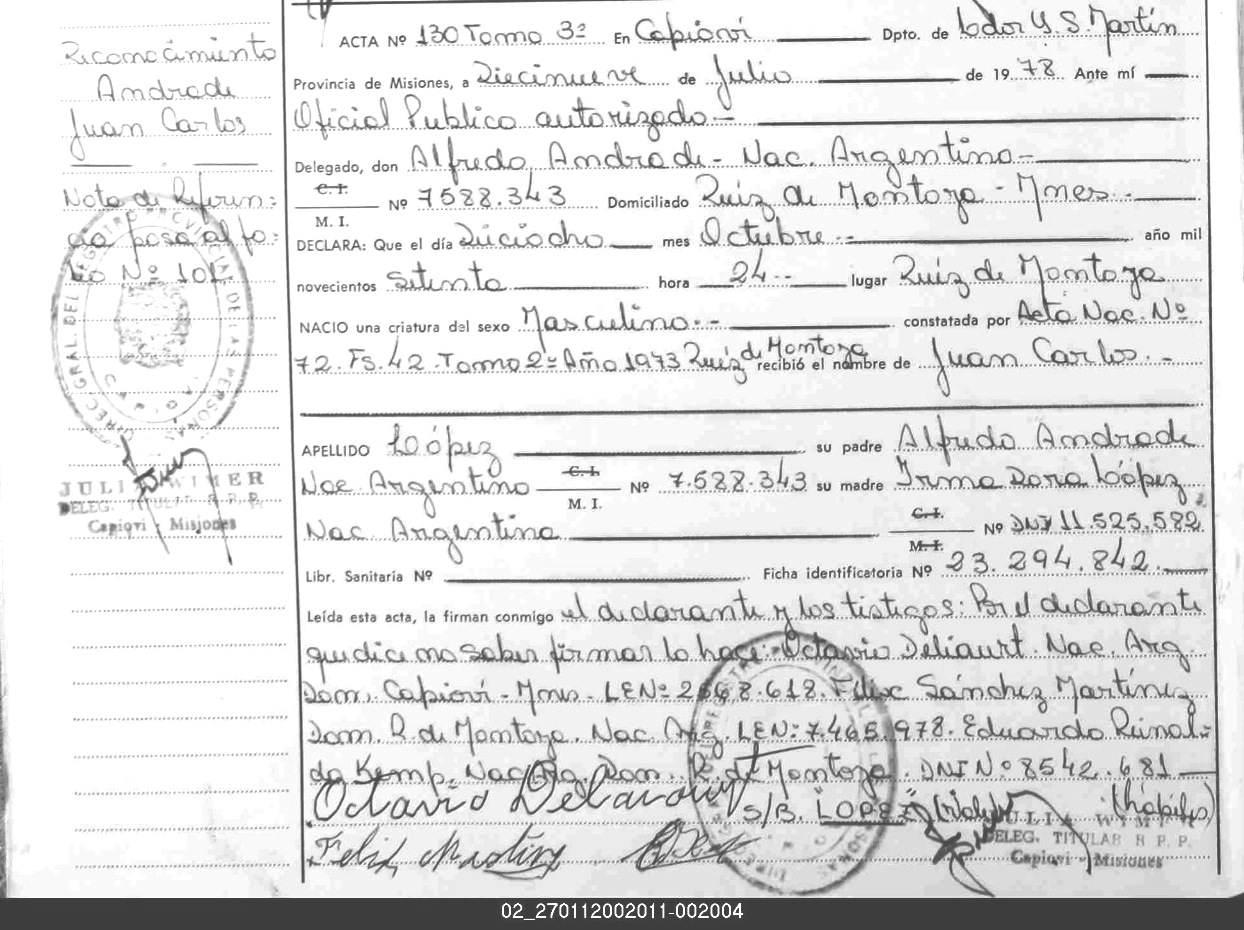 Reconocimiento
Andrade
Juan Carlos
Nota de Referen=
cia pasa al fo=
lio Nº 101
DIREC. GRAL. DEL REGISTRO PROVINCIAL DE LAS PERSONAS
JULIA WIMER
DELEG. TITULAR R. P. P.
Capiovi - Misiones
ACTA Nº 130 Tomo 3º En Capioví Dpto. de Lodor G. S. Martín
Provincia de Misiones, a Diecinueve de Julio de 1978 Ante mí
Oficial Publico autorizado-
Delegado, don Alfredo Andrade - Nac. Argentino-
C.I.
M. I. Nº 7588.343 Domiciliado Ruiz de Montoya - Mnes.-
DECLARA: Que el día Dieciocho mes Octubre.- año mil
novecientos Setenta hora 24.- lugar Ruiz de Montoya
NACIO una criatura del sexo Masculino.- constatada por Acta Nac. Nº
72. Fs. 42. Tomo 2º Año 1973 Ruiz de Montoya recibió el nombre de Juan Carlos.-
APELLIDO López su padre Alfredo Andrade
Nac. Argentino C.I. M. I. Nº 7.588.343 su madre Irma Dora López
Nac. Argentina C.I. M.I. Nº DNI 11.525.582
Libr. Sanitaria Nº Ficha identificatoria Nº 23.294.842.
Leída esta acta, la firman conmigo el declarante y los testigos: Por el declarante
que dice no saber firmar lo hace: Octavio Deliaurt. Nac. Arg.
Dom. Capioví - Mnes. LE Nº 2668.618. Felix Sánchez Martínez
Dom. R. de Montoya. Nac. Arg. LE Nº 7.465.978. Eduardo Reinal=
do Kemp. Nac. Arg. Dom. R. de Montoya. DNI Nº 8542.681
Octavio s/B. "LOPEZ" (Vale)
Felix Martinez
JULIA WIMER
DELEG. TITULAR R. P. P.
Capiovi - Misiones
02_270112002011-002004